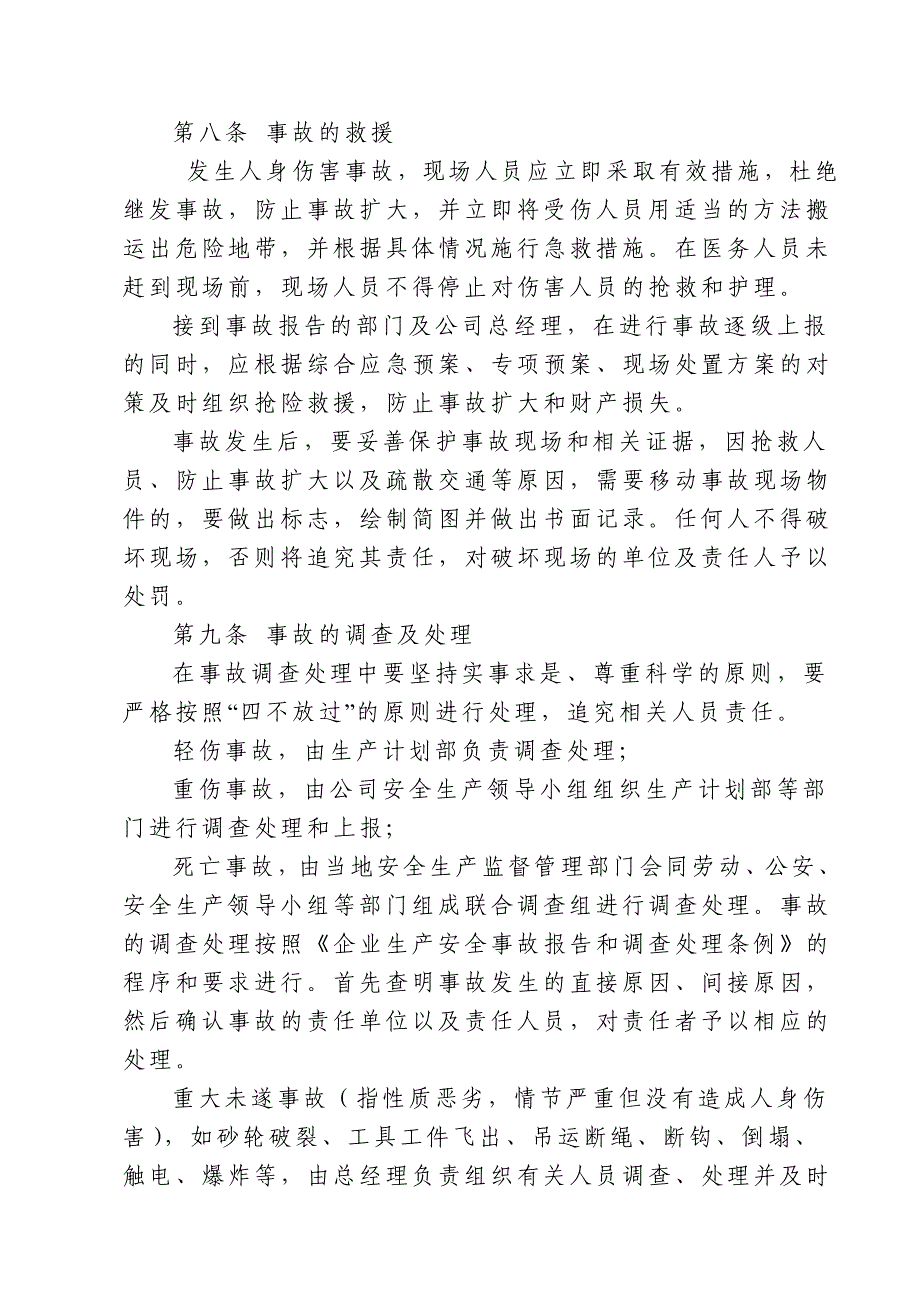 第八条 事故的救援
发生人身伤害事故，现场人员应立即采取有效措施，杜绝
继发事故，防止事故扩大，并立即将受伤人员用适当的方法搬
运出危险地带，并根据具体情况施行急救措施。在医务人员未
赶到现场前，现场人员不得停止对伤害人员的抢救和护理。
接到事故报告的部门及公司总经理，在进行事故逐级上报
的同时，应根据综合应急预案、专项预案、现场处置方案的对
策及时组织抢险救援，防止事故扩大和财产损失。
事故发生后，要妥善保护事故现场和相关证据，因抢救人
员、防止事故扩大以及疏散交通等原因，需要移动事故现场物
件的，要做出标志，绘制简图并做出书面记录。任何人不得破
坏现场，否则将追究其责任，对破坏现场的单位及责任人予以
处罚。
第九条 事故的调查及处理
在事故调查处理中要坚持实事求是、尊重科学的原则，要
严格按照“四不放过”的原则进行处理，追究相关人员责任。
轻伤事故，由生产计划部负责调查处理；
重伤事故，由公司安全生产领导小组组织生产计划部等部
门进行调查处理和上报；
死亡事故，由当地安全生产监督管理部门会同劳动、公安、
安全生产领导小组等部门组成联合调查组进行调查处理。事故
的调查处理按照《企业生产安全事故报告和调查处理条例》的
程序和要求进行。首先查明事故发生的直接原因、间接原因，
然后确认事故的责任单位以及责任人员，对责任者予以相应的
处理。
重大未遂事故（指性质恶劣，情节严重但没有造成人身伤
害），如砂轮破裂、工具工件飞出、吊运断绳、断钩、倒塌、
触电、爆炸等，由总经理负责组织有关人员调查、处理并及时